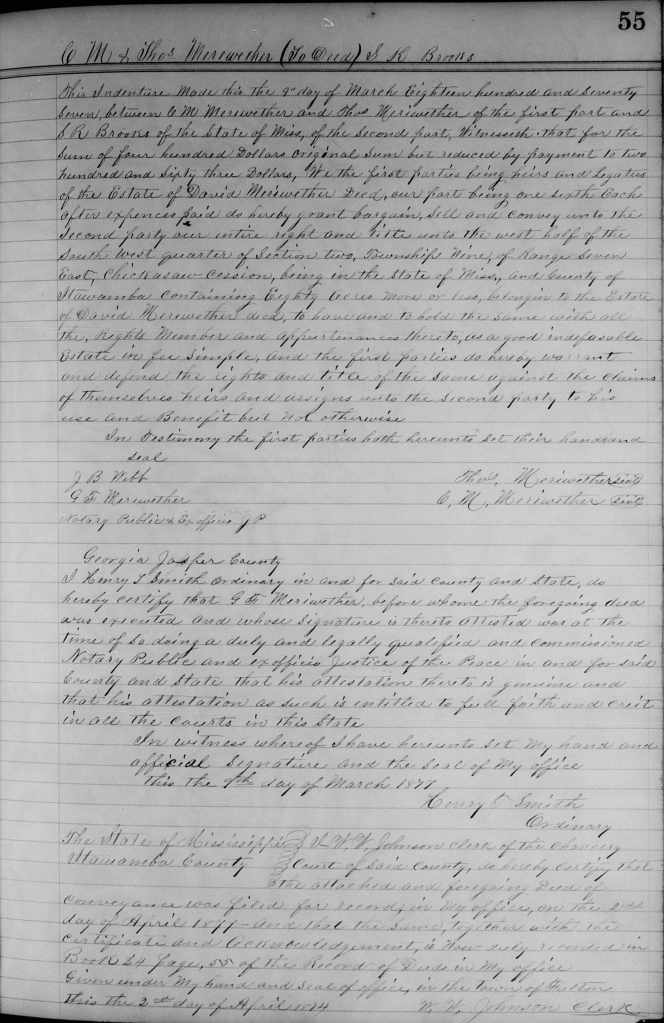 55
C M & Thos Meriwether (To Deed) S R Brooks
This Indenture Made this the 9" day of March Eighteen hundred and seventy
seven, between C M Meriwether and Thos Meriwether of the first part and
S R Brooks of the State of Miss, of the Second part, Witnesseth that for the
Sum of four hundred Dollars Original Sum but reduced by payment to two
hundred and Sixty three Dollars, We the first parties being heirs and Legatees
of the Estate of David Meriwether Decd, our part being one sixth Each
after expences paid do hereby grant bargain, Sell and Convey unto the
Second party our entire right and title unto the west half of the
South West quarter of Section two, Township Nine, of Range Seven
East, Chickasaw Cession, being in the State of Miss, and County of
Itawamba Containing Eighty acres More or less, belongin to the Estate
of David Meriwether decd, to have and to hold the same with all
the, Rights Member and appurtenances thereto, as a good indefasable
Estate in fee Simple, and the first parties do hereby warrant
and defend the rights and title of the same against the Claims
of themselves heirs and assigns unto the Second party to his
use and Benefit but Not otherwise
In Testimony the first parties both hereunto Set their hands and
seal
J B Webb Thos, Meriwether
G T Meriwether C, M, Meriwether
Notary Public & Ex officio J P
Georgia Jasper County
I Henry T Smith Ordinary in and for said County and State, do
hereby certify that G T Meriwether, before whome the foregoing deed
was executed and whose Signature is thereto attested was at the
time of so doing a duly and legally qualified and Commissioned
Notary Public and ex officio Justice of the Peace in and for said
County and State that his attestation thereto is genuine and
that his attestation as such is entitled to full faith and Credit
in all the Courts in this State
In witness whereof I have hereunto Set My hand and
official Signature and the Seal of My office
this the 9th day of March 1877
Henry T Smith
Ordinary
The State of Mississippi I W. W. Johnson Clerk of the Chancery
Itawamba County Court of Said County, do hereby Certify that
the attached and foregoing Deed of
Conveyance was filed for record, in My office, on the 2nd
day of April 1877 and that the Same, together with the
Certificate and Acknowledgement, is Now duly recorded in
Book 24 page, 55 of the Record of Deeds in My office
Given under My hand and Seal of office, in the town of Fulton
this the 2nd day of April 1874 W. W. Johnson Clerk